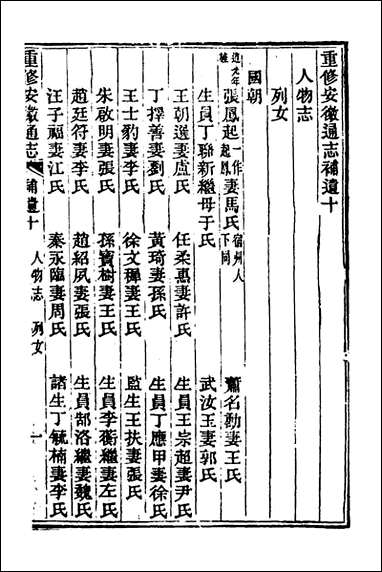 重修安徽通志補遺十
人物志
列女
國朝
張鳳起一作起鳳妻馬氏宿州人下同 蕭名勤妻王氏
生員丁聯新繼母于氏 武汝玉妻郭氏
王朝選妻盧氏 任柔惠妻許氏 生員王宗超妻尹氏
丁擇善妻劉氏 黃琦妻孫氏 生員丁應甲妻徐氏
王士豹妻李氏 徐文樨妻王氏 監生王扶妻張氏
朱啟明妻張氏 孫寶樹妻王氏 生員李衛繼妻左氏
趙廷符妻李氏 趙紹夙妻張氏 生員郜洛繼妻魏氏
汪子福妻江氏 秦永臨妻周氏 諸生丁毓楠妻李氏
重修安徽通志 補遺十 人物志 列女 一